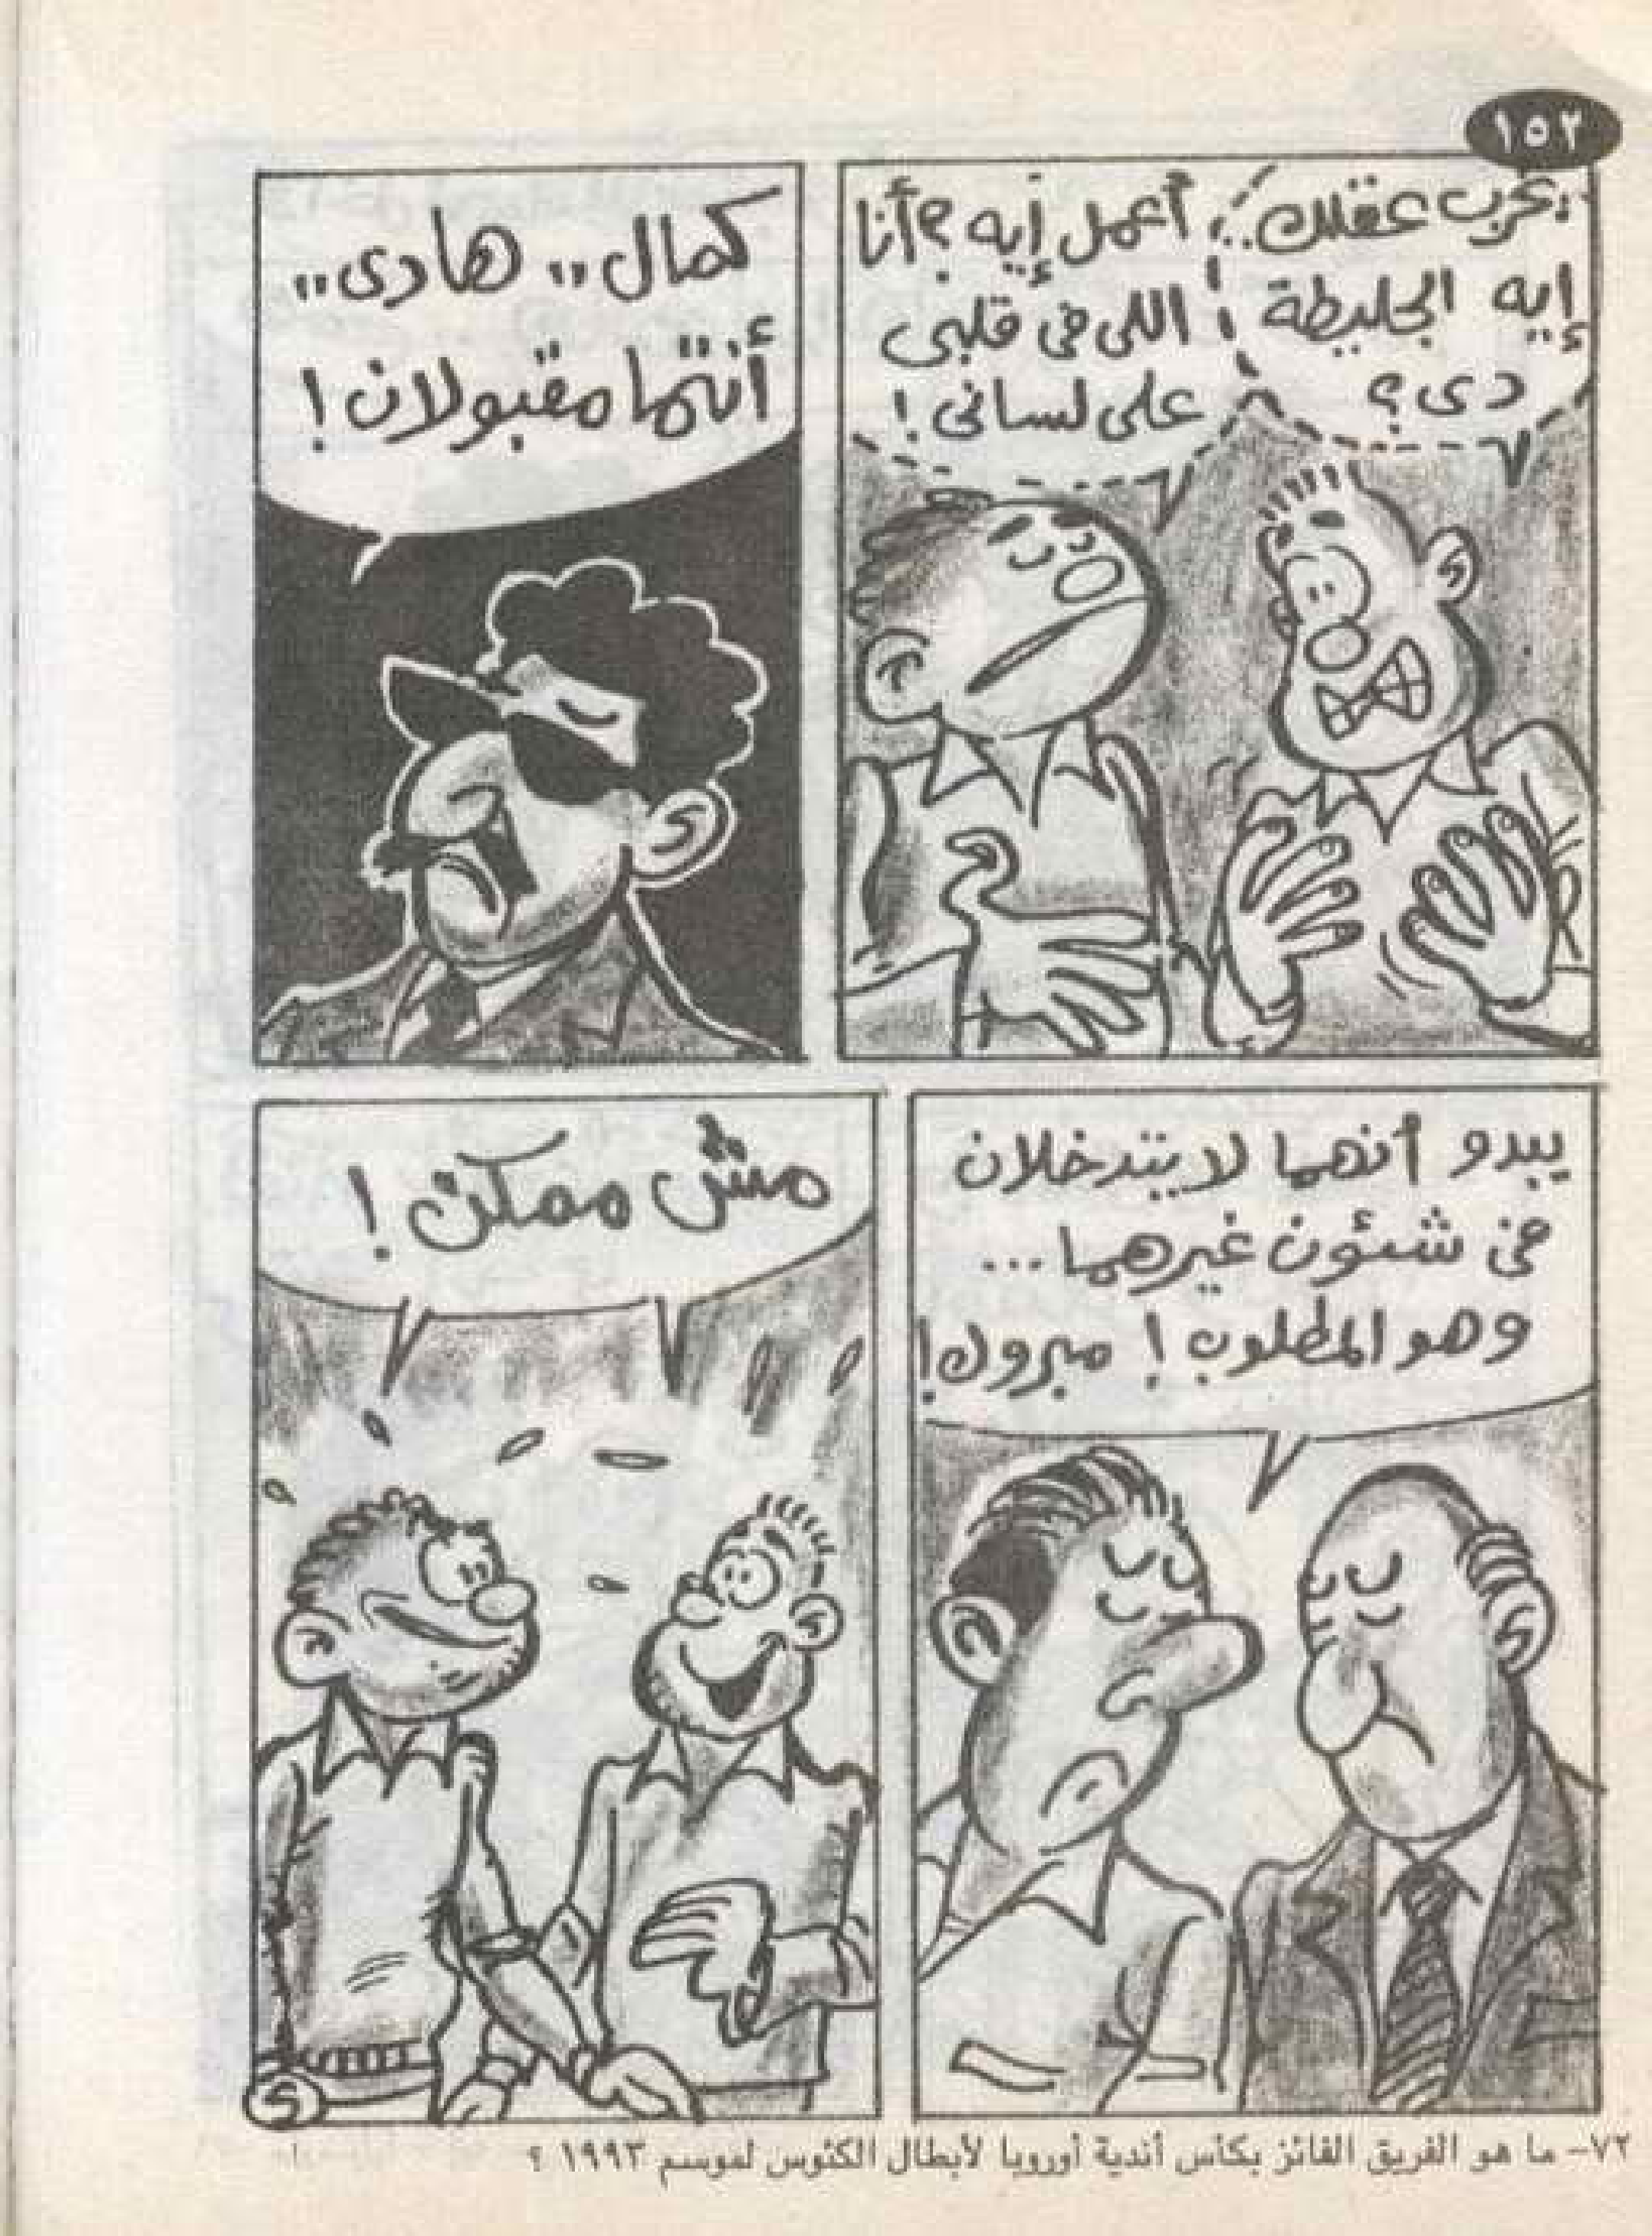 ١٥٢
يخرب عقلك..
إيه الجليطة
دى؟
أعمل إيه؟ أنا
اللى فى قلبى
على لسانى!
كمال.. هادى..
أنتما مقبولان!
يبدو أنهما لا يتدخلان
فى شئون غيرهما...
وهو المطلوب! مبروك!
مش ممكن!
٧٢- ما هو الفريق الفائز بكأس أندية أوروبا لأبطال الكئوس لموسم ١٩٩٣ ؟